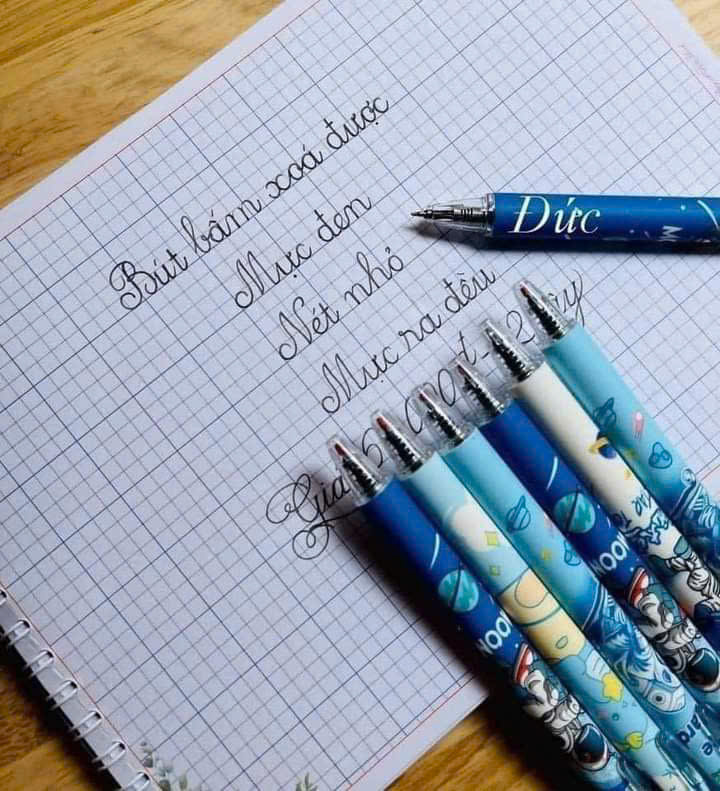 Bút bấm xoá được
Mực đen
Nét nhỏ
Mực ra đều
Giá
Đức
MOON
MOON